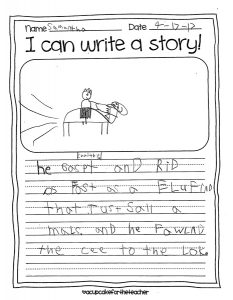 Name Samantha Date 4-17-12
I can write a story!
he Gaspt and RiD
as Fast as a ELUFIND
that Just Sall a
maws, and he FowLND
the cee to the Lok.
©acupcakefortheteacher